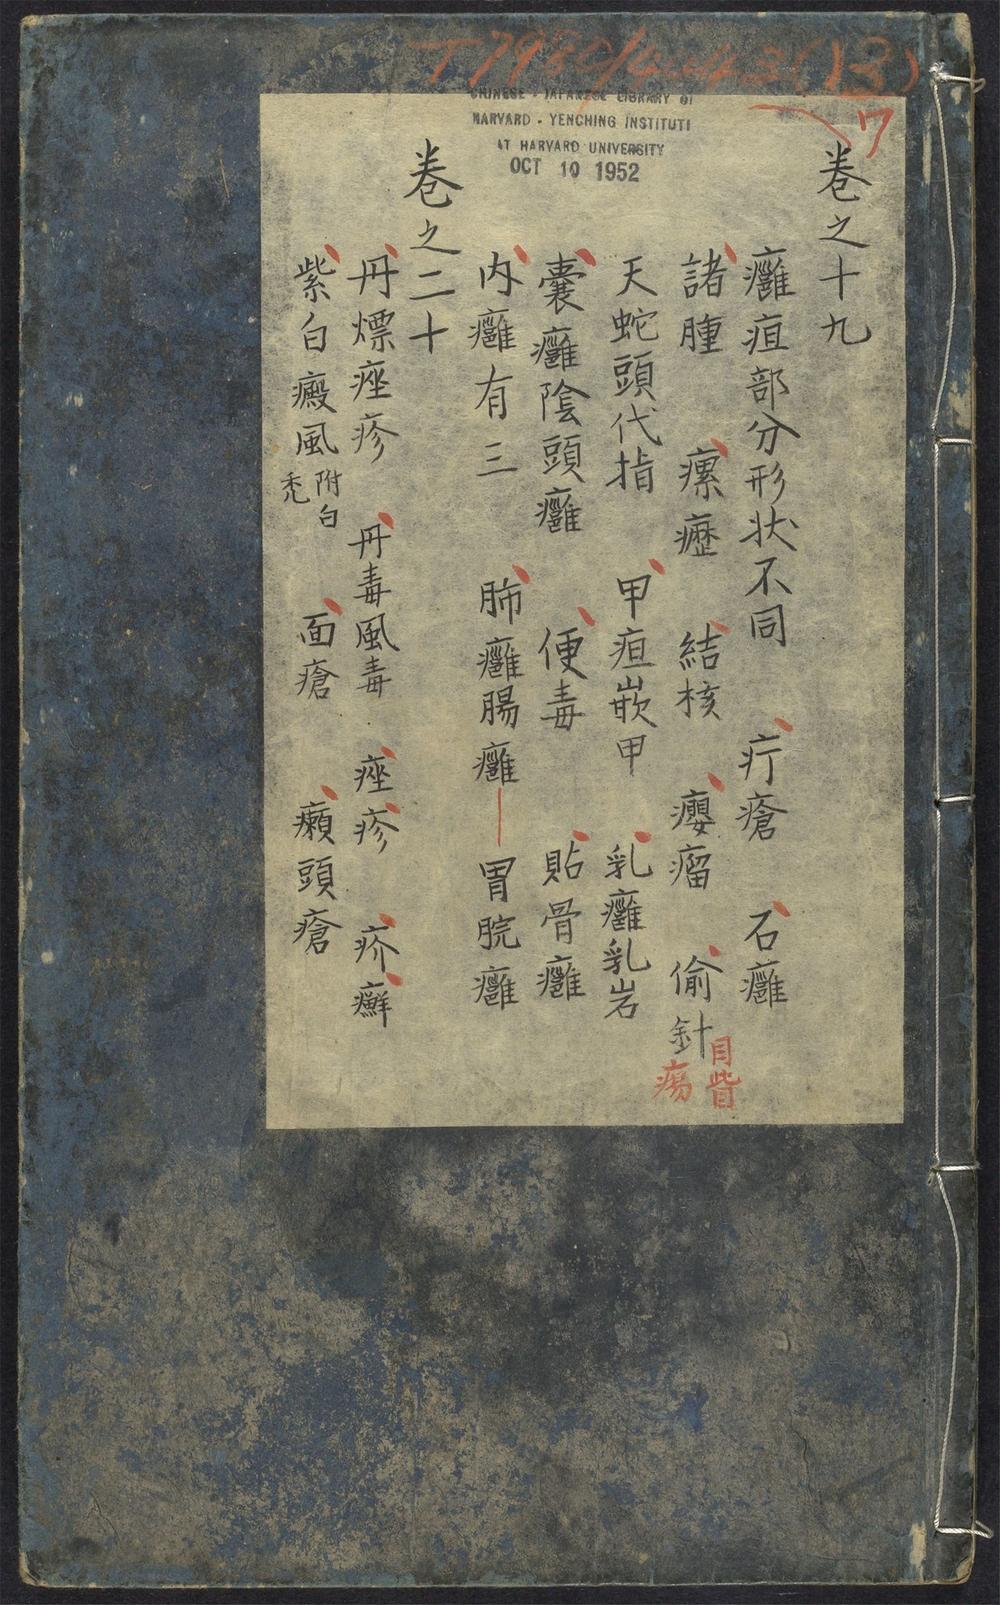 T7980/4443(13)
7
CHINESE - JAPANESE LIBRARY OF
HARVARD - YENCHING INSTITUTE
AT HARVARD UNIVERSITY
OCT 10 1952
卷之十九
癰疽部分形状不同 疔瘡 石癰
諸腫 瘰癧 結核 癭瘤 偷針
目眥
瘍
天蛇頭代指 甲疽嵌甲 乳癰乳岩
囊癰陰頭癰 便毒 貼骨癰
内癰有三 肺癰腸癰 胃脘癰
卷之二十
丹熛痤疹 丹毒風毒 痤疹 疥癬
紫白癜風 附白禿 面瘡 癩頭瘡